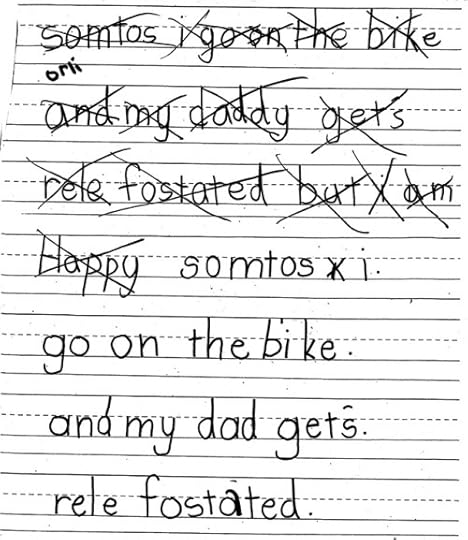 somtos i go on the bike
orli
and my daddy gets
rele fostated but I am
Happy somtos x i.
go on the bike.
and my dad gets.
rele fostated.